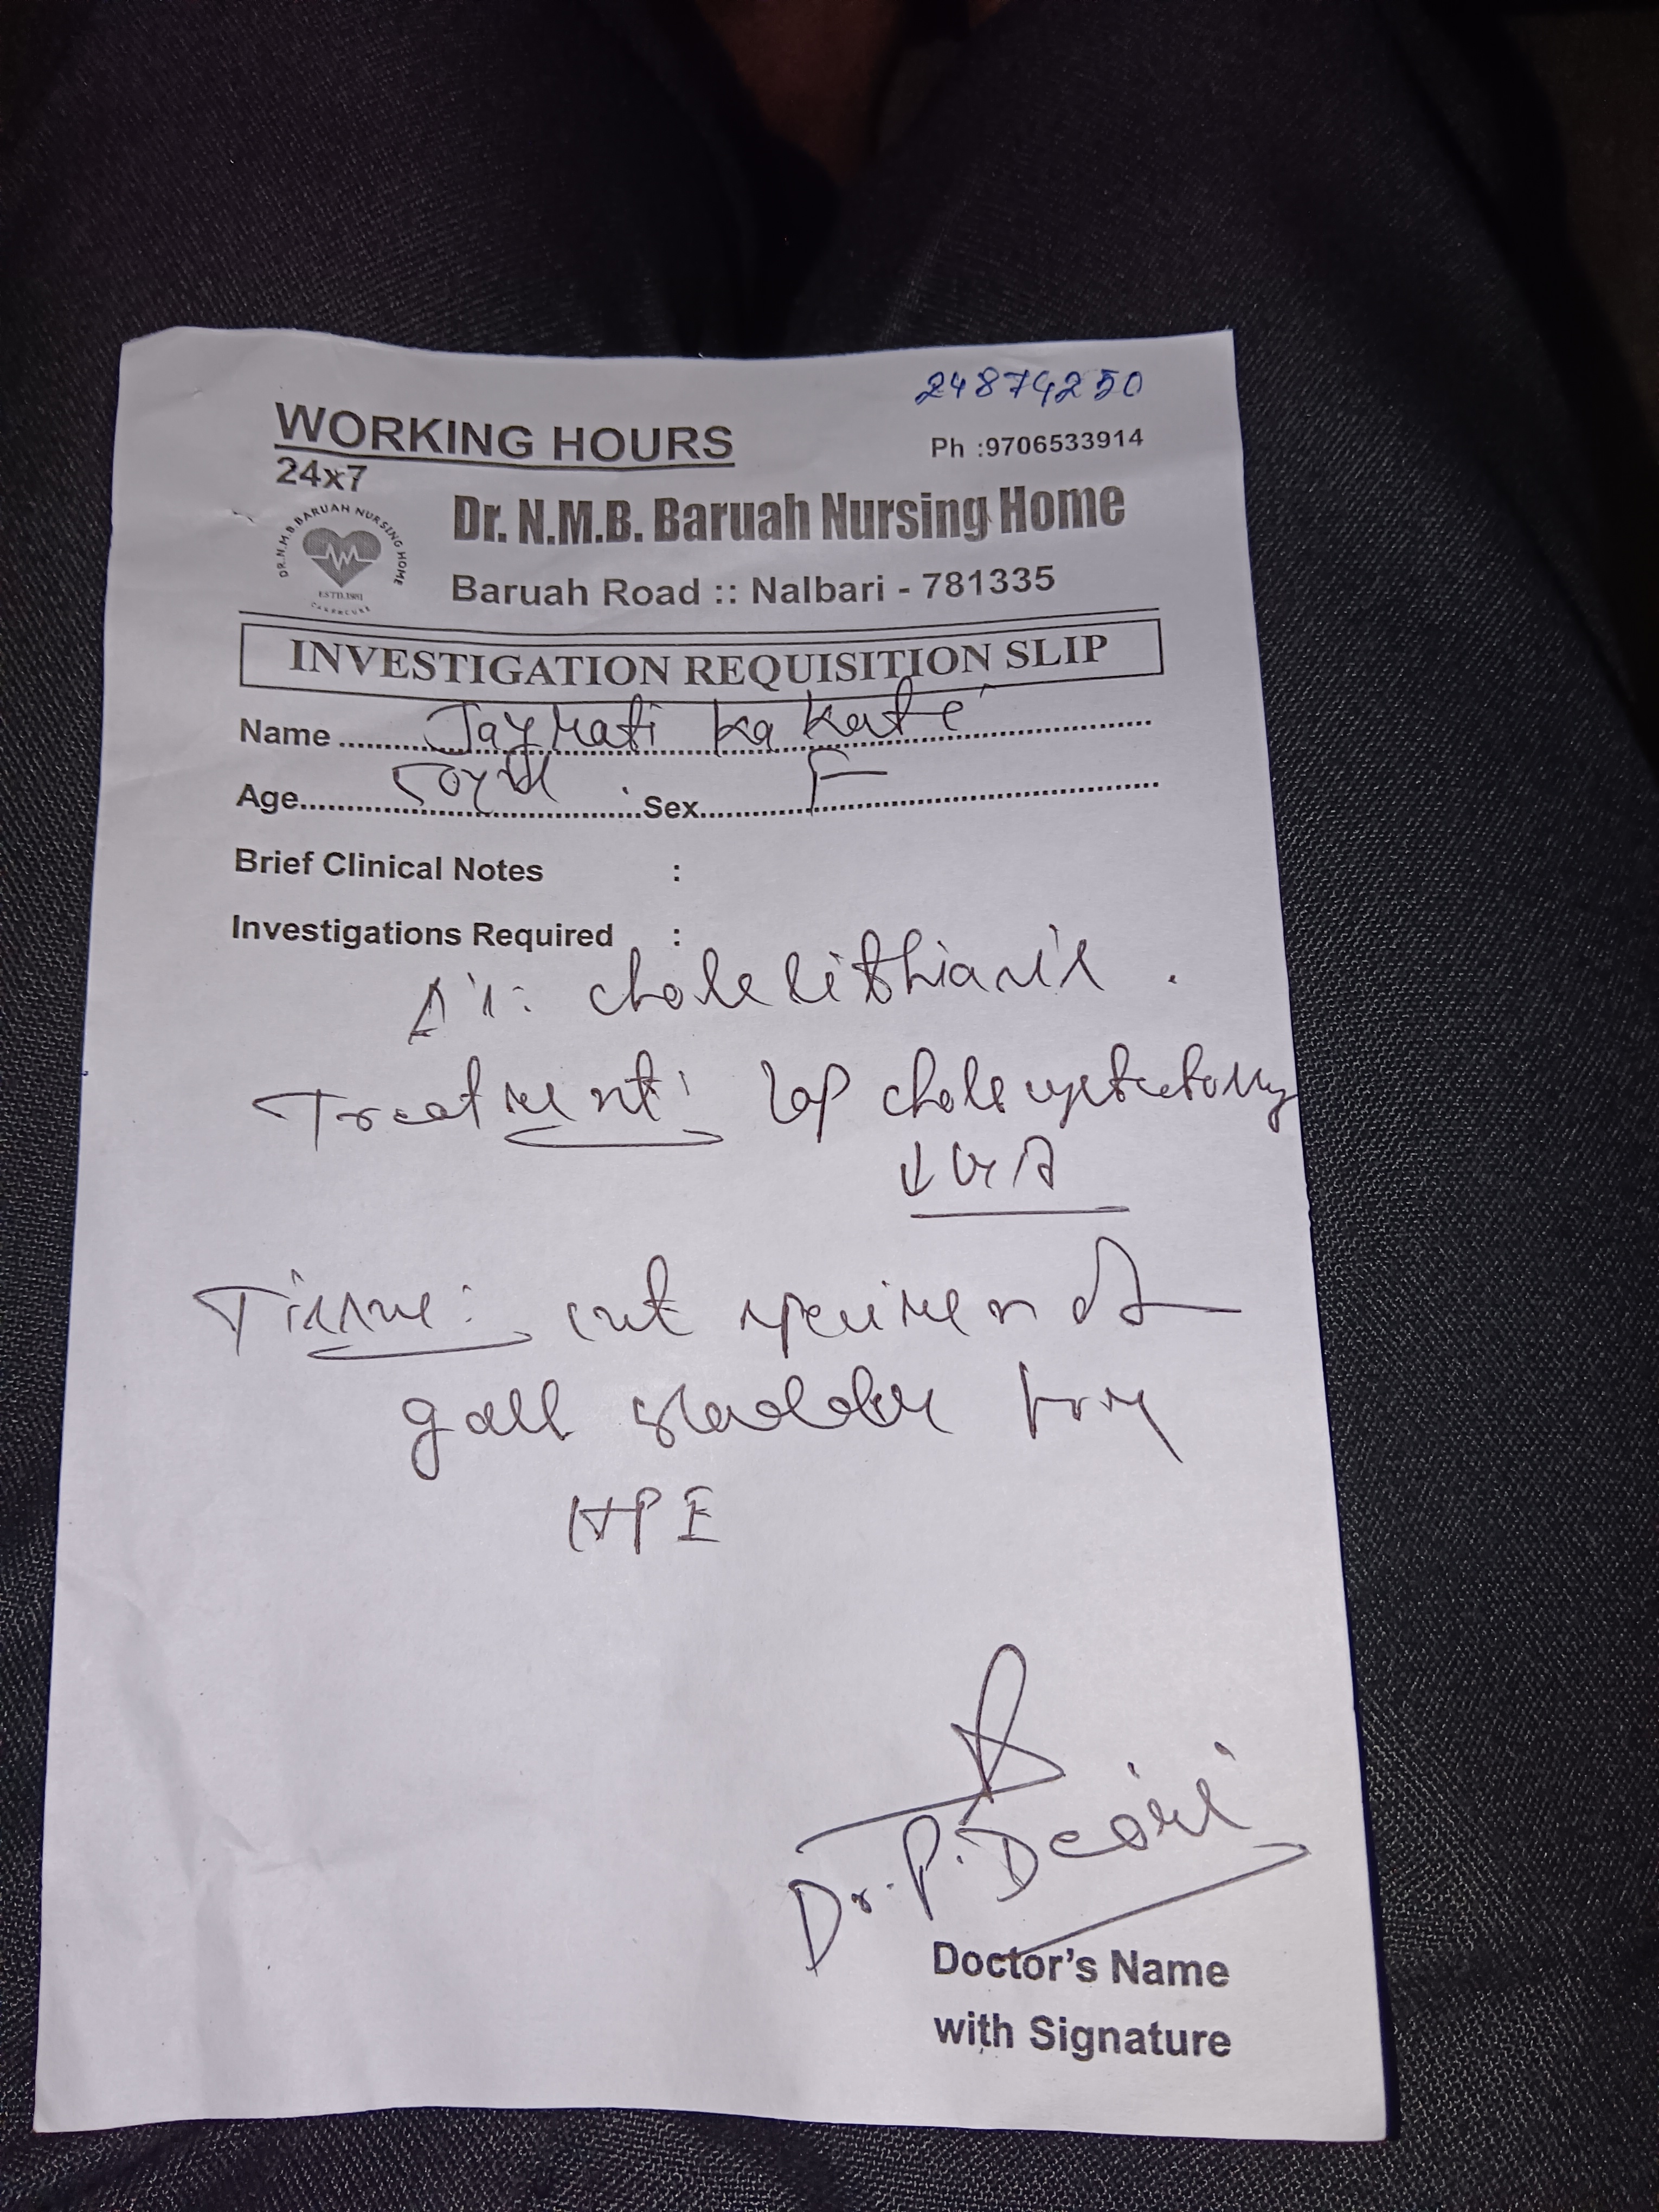 24874250
WORKING HOURS
Ph :9706533914
24x7
DR.N.M.B.BARUAH NURSING HOME
ESTD.1981
Dr. N.M.B. Baruah Nursing Home
Baruah Road :: Nalbari - 781335
INVESTIGATION REQUISITION SLIP
Name Jaymati Kakati
Age 50 Sex F
Brief Clinical Notes :
Investigations Required :
Δis: cholelithiasis.
Treatment: Lap cholecystectomy
↓ GA
Tissue: cut specimen of
gall bladder for
HPE
Dr. P. Deori
Doctor's Name
with Signature